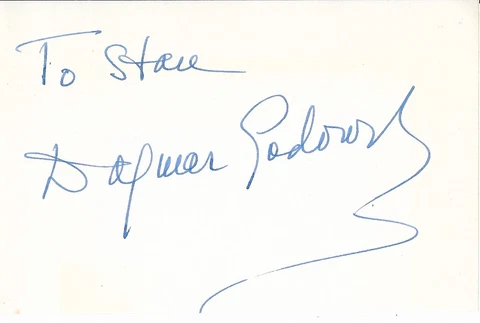 To Stace
Dagmar Godowsky